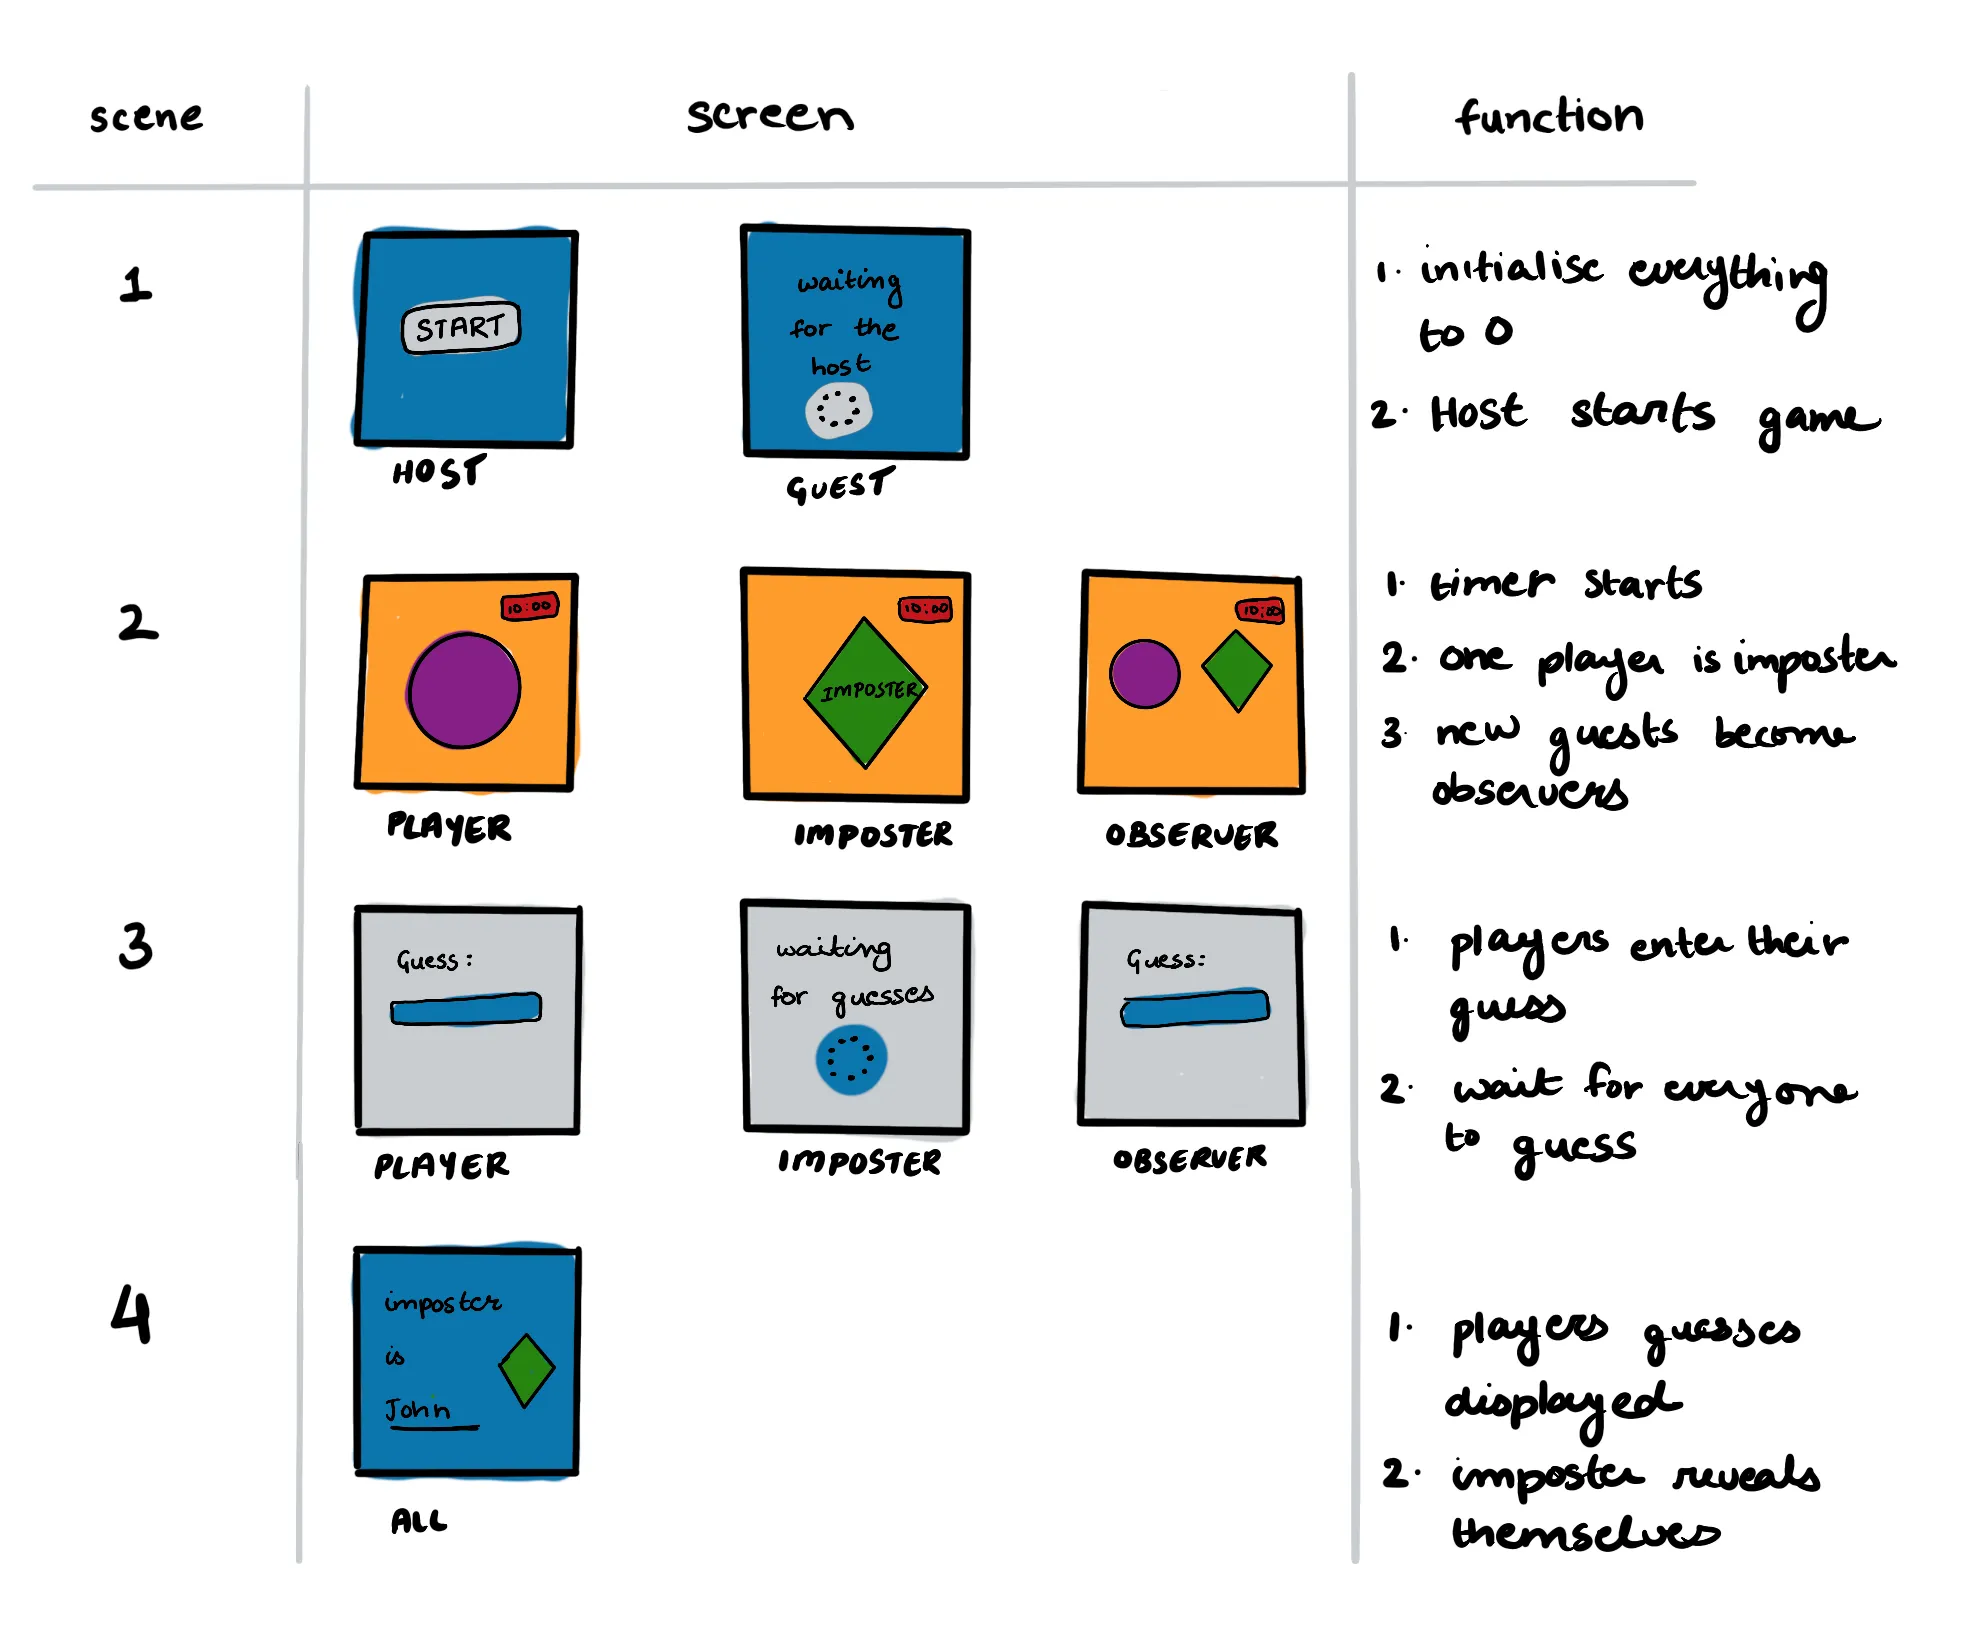 scene
screen
function
1
START
HOST
waiting
for the
host
GUEST
1. initialise everything
to 0
2. Host starts game
2
10:00
PLAYER
10:00
IMPOSTER
IMPOSTER
10:00
OBSERVER
1. timer starts
2. one player is imposter
3. new guests become
observers
3
Guess:
PLAYER
waiting
for guesses
IMPOSTER
Guess:
OBSERVER
1. players enter their
guess
2. wait for everyone
to guess
4
imposter
is
John
ALL
1. players guesses
displayed
2. imposter reveals
themselves